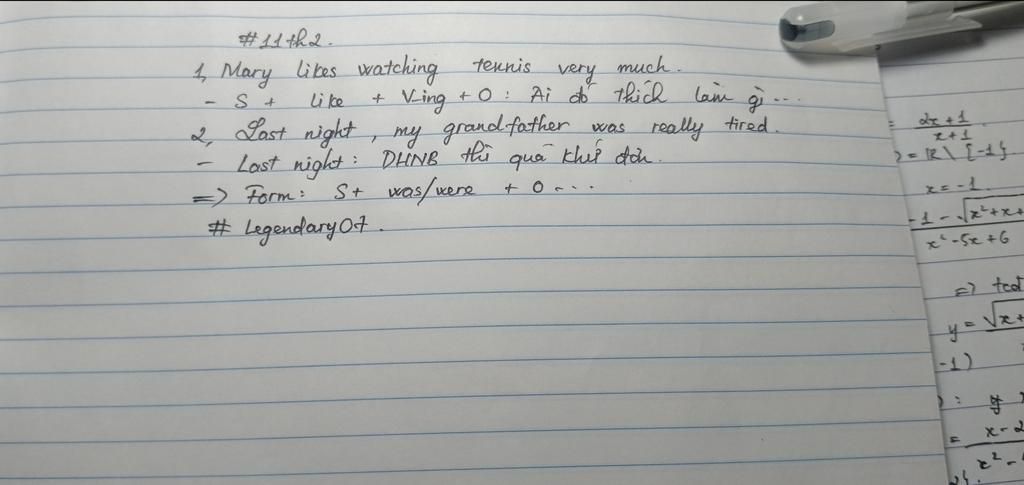 #11th2.
1, Mary likes watching tennis very much.
- S + like + V-ing + O : Ai đó thích làm gì ...
2, Last night, my grandfather was really tired.
- Last night : DHNB thì quá khứ đơn.
=> Form: S + was/were + O ...
# LegendaryOt.
= 2x+1
x+1
= R \ {-1}
x = -1.
-1 - √x²+x+
x² - 5x + 6
=> tcđ
y = √x+
-1)
= x-2
x² -